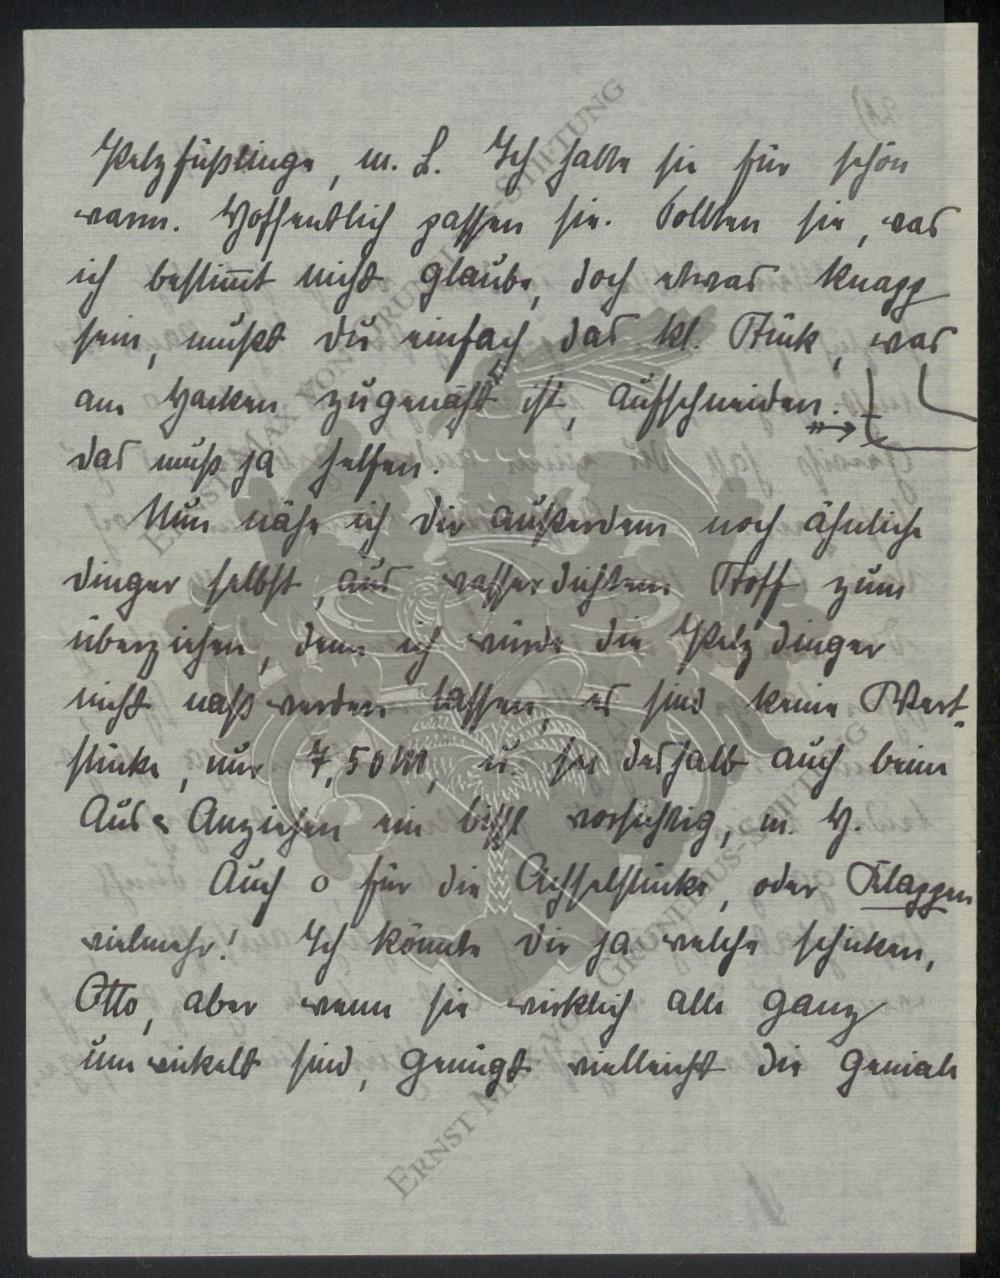 Pelzfüßlinge, m. L. Ich halte sie für schön
warm. Hoffentlich passen sie. Sollten sie, was
ich bestim̅t nicht glaube, doch etwas knapp
sein, mußt Du einfach das kl. Stück, was
am Hacken zugenäht ist, aufschneiden.
das muß ja helfen.
Nun nähe ich Dir außerdem noch ähnliche
Dinger selbst, aus wasserdichtem Stoff zum
überziehen, denn ich würde die Pelzdinger
nicht naß werden lassen, es sind keine Wert-
stücke, nur 7,50 M, u. sei deshalb auch beim
Aus & Anziehen ein bissl vorsichtig, m. H.
Auch o für die Achselstücke, oder Klappen
vielmehr! Ich könnte Dir ja welche schicken,
Otto, aber wenn sie wirklich alle ganz
umwickelt sind, genügt vielleicht die geniale
ERNST MAX VON GRUNELIUS-STIFTUNG
ERNST MAX VON GRUNELIUS-STIFTUNG